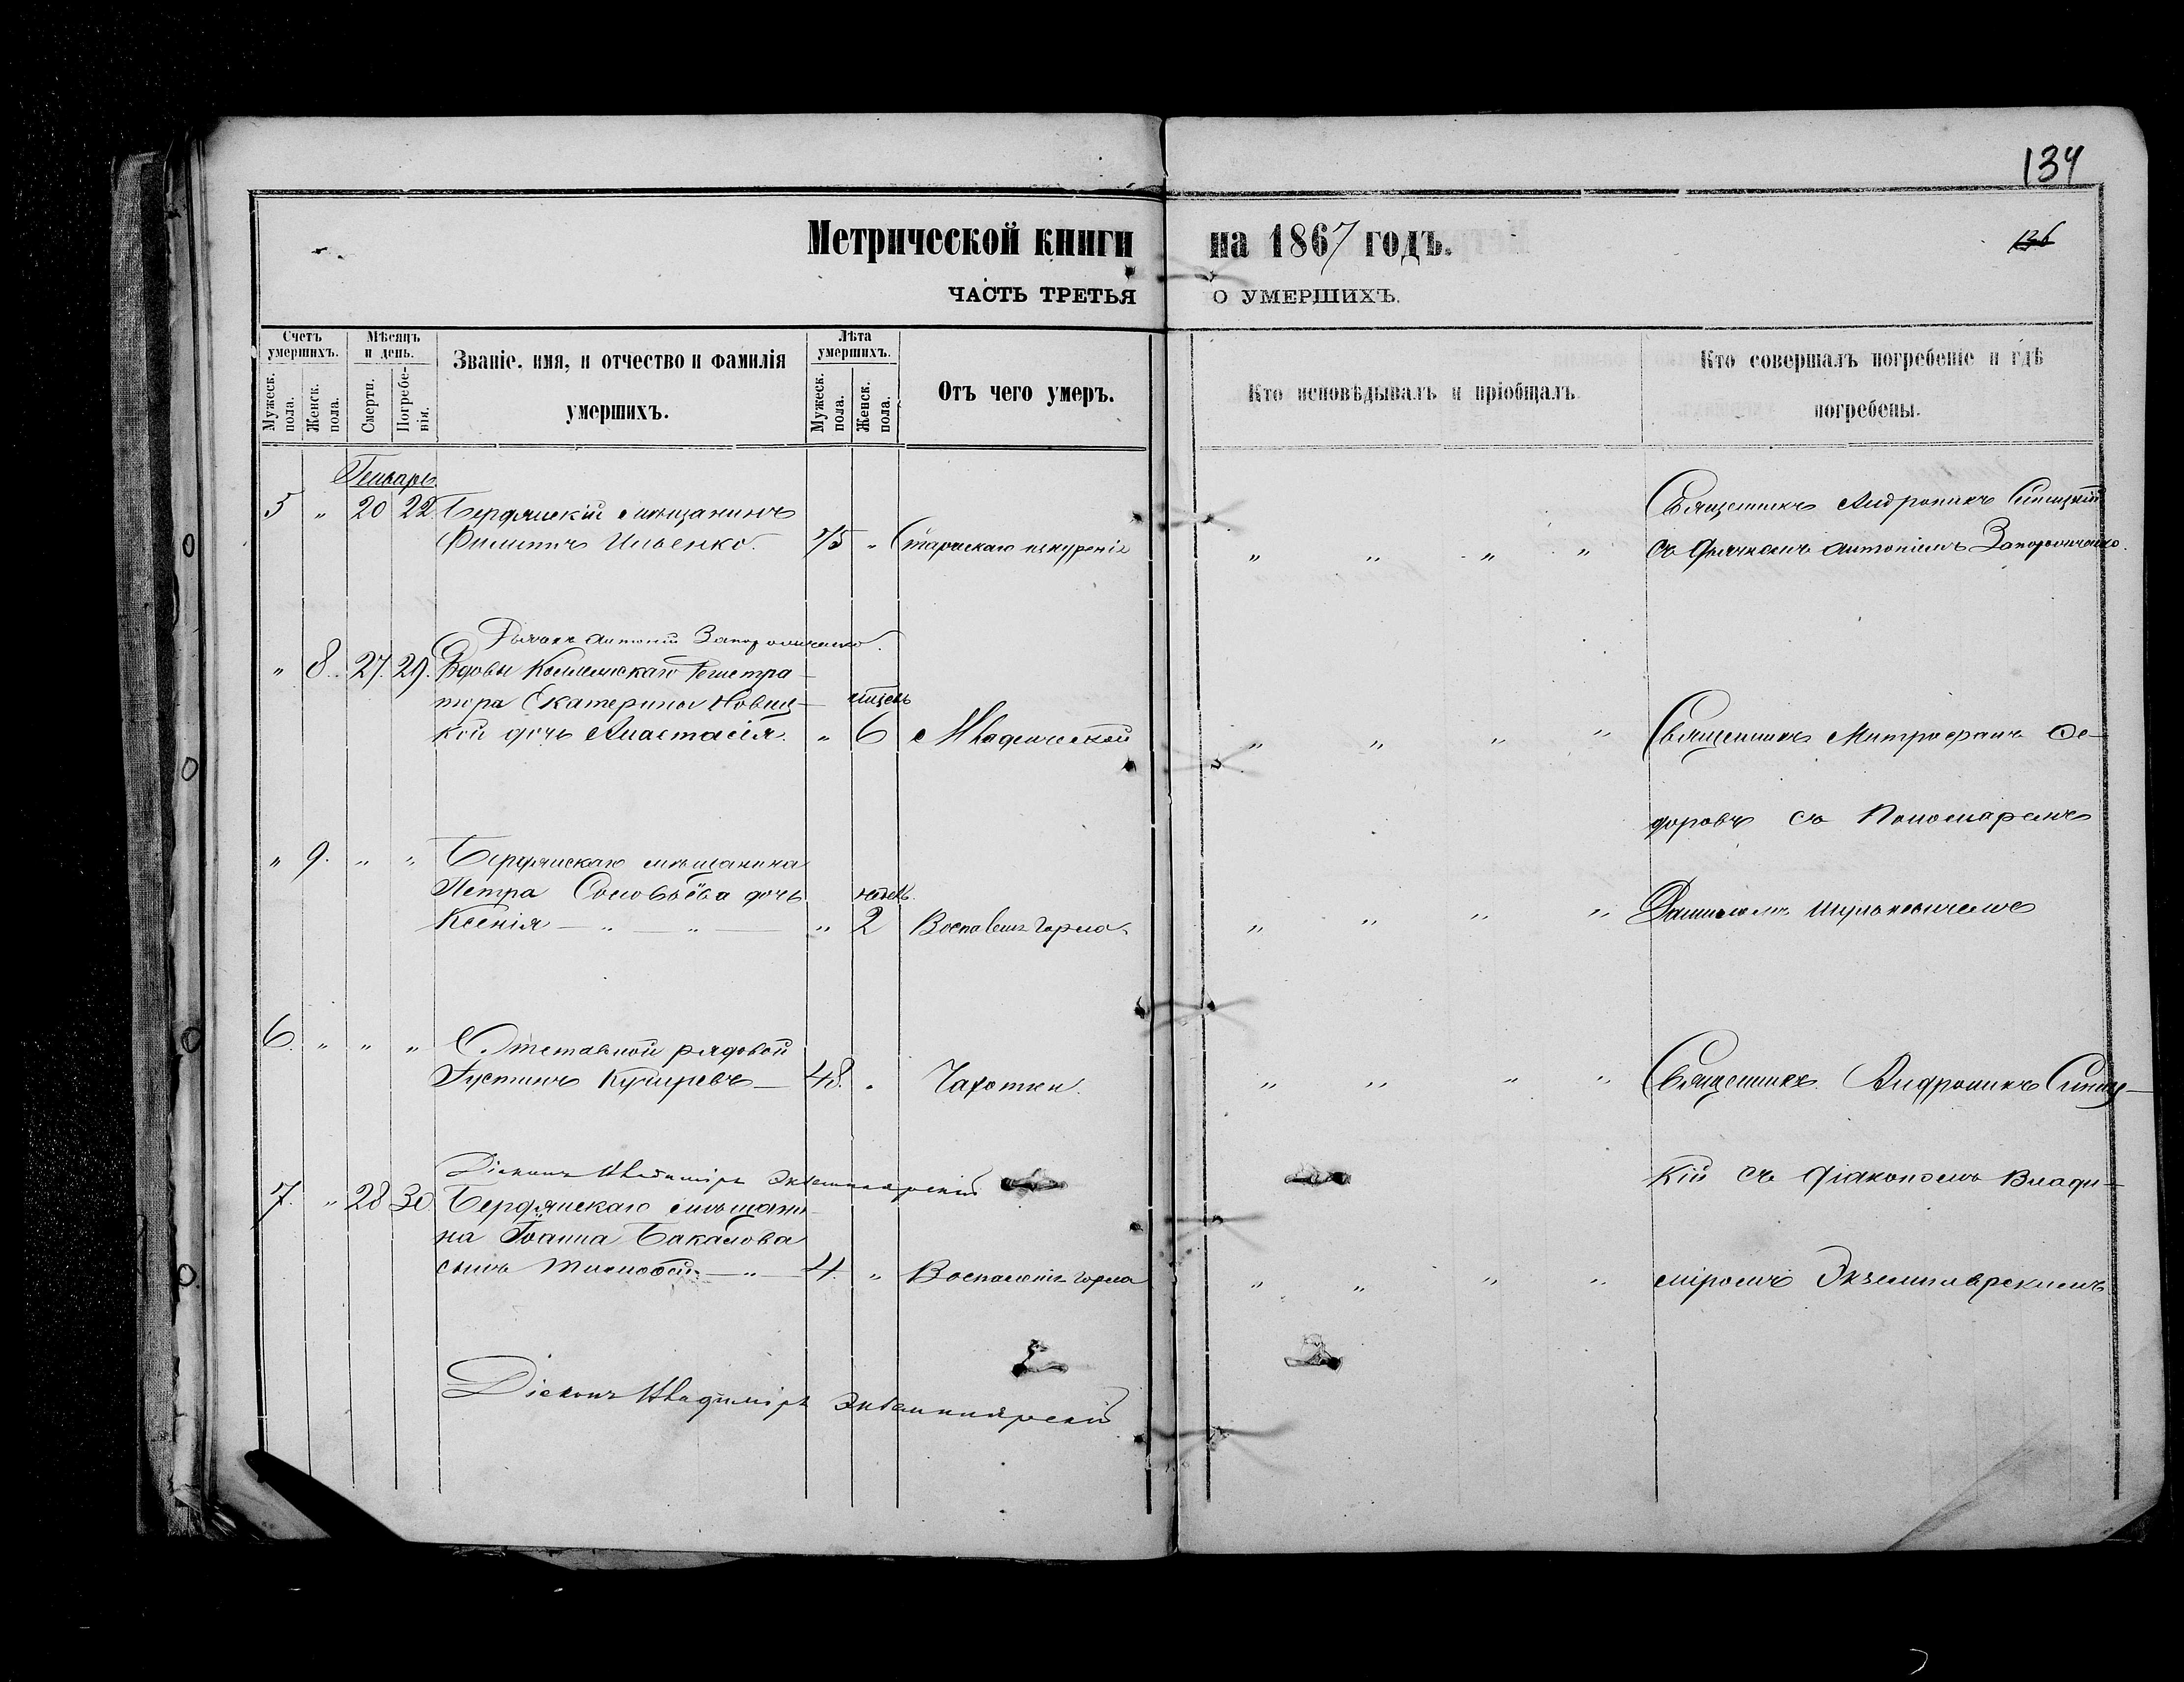 134
136
Метрической книги на 1867 годъ.
ЧАСТЬ ТРЕТЬЯ О УМЕРШИХЪ.
Счетъ умершихъ.
Мужеск. пола.
Женск. пола.
Мѣсяцъ и день.
Смерти.
Погребенія.
Званіе, имя, и отчество и фамилія умершихъ.
Лѣта умершихъ.
Мужеск. пола.
Женск. пола.
Отъ чего умеръ.
Кто исповѣдывалъ и пріобщалъ
Кто совершалъ погребеніе и гдѣ погребены.
Генварь
5 " 20 22 Бердянскій мѣщанинъ
Филиппъ Ильенко. 75 " Старческаго изнуренія
" " " "
Священникъ Андроникъ Синицкій
съ дьячкомъ Антоніемъ Запорожченко.
Дьячекъ Антоній Запорожченко.
" 8. 27. 29. Вдовы Коллежскаго Регистра-
тора Екатерины Новиц-
кой дочь Анастасія. " 6 Младенческой
" " " "
Священникъ Митрофанъ Ѳе-
доровъ съ Пономаремъ
" 9. " " Бердянскаго мѣщанина
Петра Соловьёва дочь
Ксенія — " — " — " 2 горла
" " " "
6. " " " Отставной рядовой
48. " Чахотки.
" " " "
Священникъ Андроникъ Синиц-
кій съ діакономъ Влади-
міромъ Экземплярскимъ
Діаконъ Владиміръ Экземплярскій
7. " 28 30 Бердянскаго мѣщани-
на Іоанна Бакалова
сынъ Тимофей — " — 4. " горла
" " " "
Діаконъ Владиміръ Экземплярскій